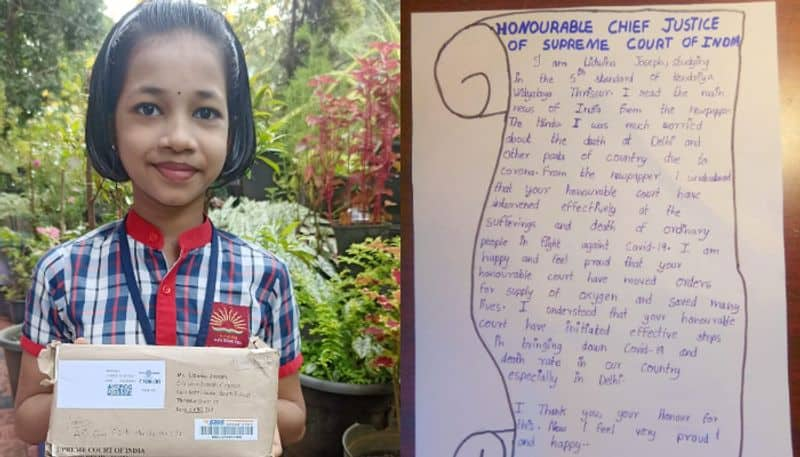 HONOURABLE CHIEF JUSTICE
OF SUPREME COURT OF INDIA
I am Lidwina Joseph, studying
in the 5th standard of kendriya
Vidyalaya Thrissur. I read the main
news of India from the newspaper
The Hindu. I was much worried
about the death at Delhi and
other parts of country due to
corona. From the newspaper, I understand
that your honourable court have
intervened effectively at the
sufferings and death of ordinary
people in fight against Covid-19. I am
happy and feel proud that your
honourable court have moved orders
for supply of oxygen and saved many
lives. I understood that your honourable
court have initiated effective steps
in bringing down Covid-19 and
death rate in our Country
especially in Delhi.
I Thank you, your Honour for
this. Now I feel very proud
and happy--
Ms. Lidwina Joseph
SUPREME COURT OF INDIA